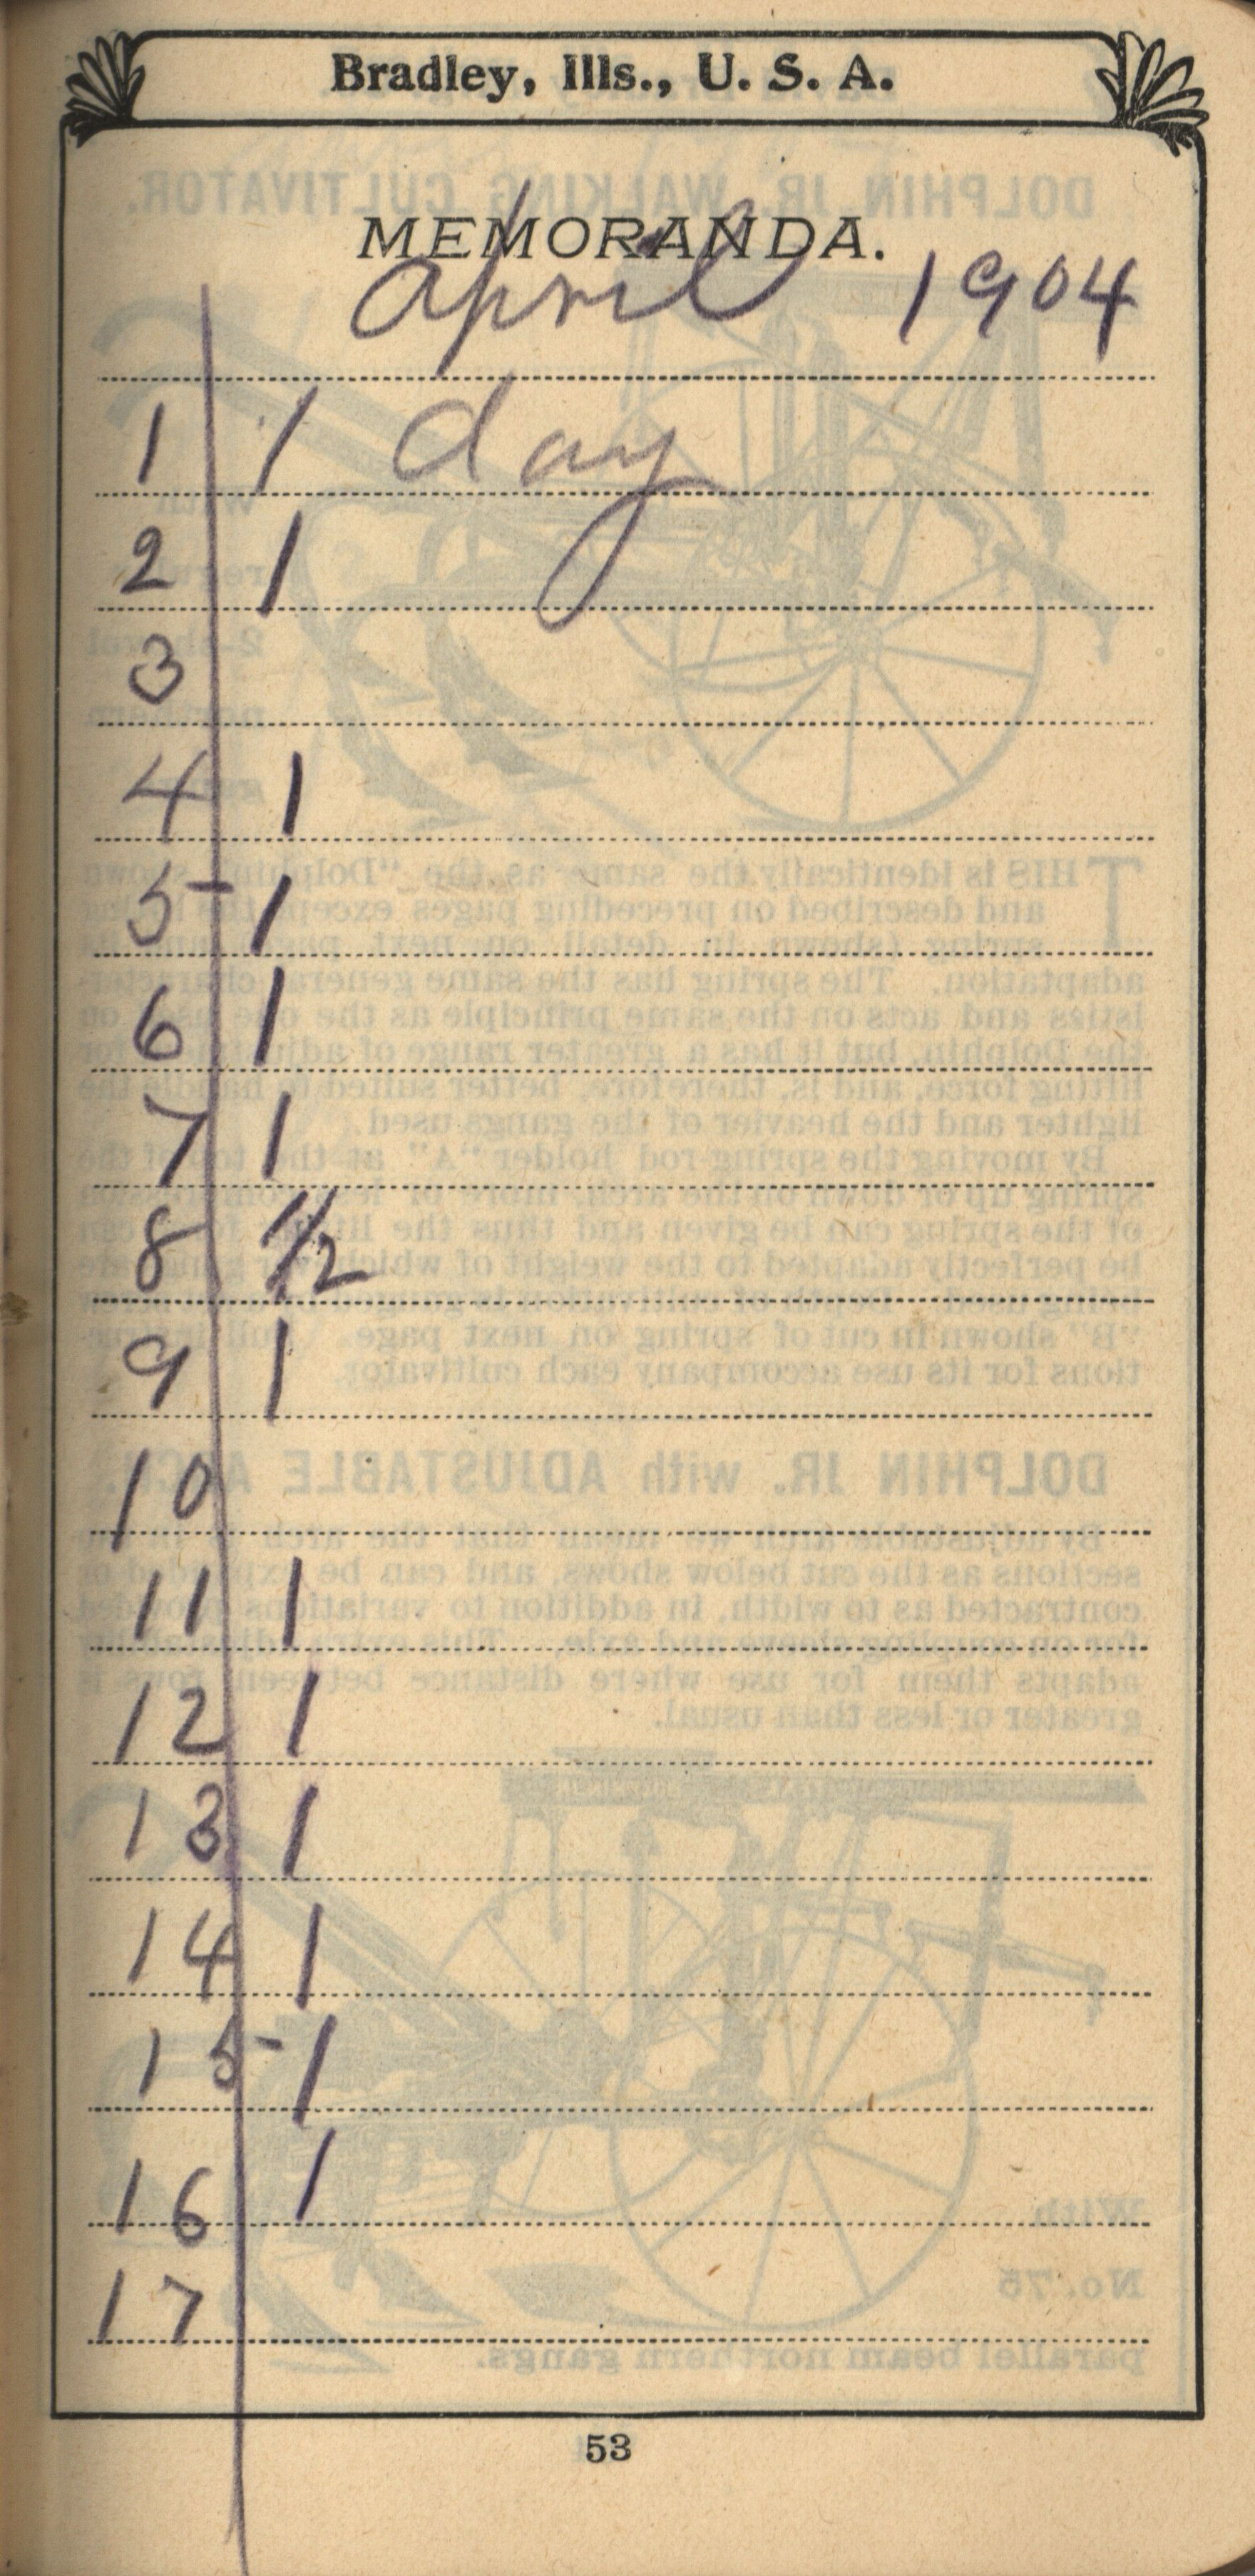 Bradley, Ills., U. S. A.
MEMORANDA.
April 1904
1 1 day
2 1
3
4 1
5 1
6 1
7 1
8 1/2
9 1
10
11 1
12 1
13 1
14 1
15 1
16 1
17
53